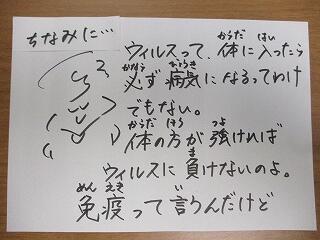 ちなみに…
ウィルスって、体に入ったら
必ず病気になるってわけ
でもない。
体の方が強ければ
ウィルスに負けないのよ。
免疫って言うんだけど